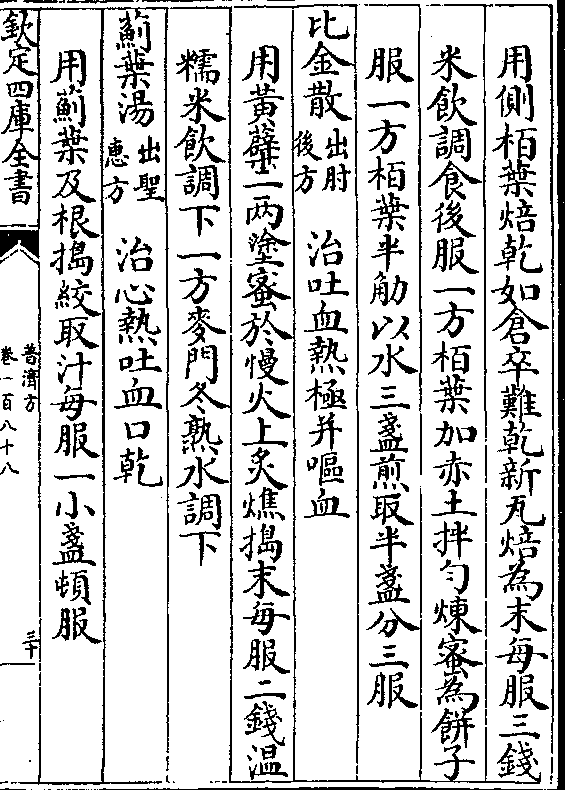 用側栢葉焙乾如倉卒難乾新瓦焙為末每服三錢
米飲調食後服一方栢葉加赤土拌勻煉蜜為餅子
服一方栢葉半觔以水三盞煎取半盞分三服
比金散出肘後方 治吐血熱極并嘔血
用黃蘗一两塗蜜於慢火上炙燋搗末每服二錢溫
糯米飲調下一方麥門冬熟水調下
薊葉湯出聖惠方 治心熱吐血口乾
用薊葉及根搗絞取汁每服一小盞頓服
欽定四庫全書
普濟方
卷一百八十八
三十